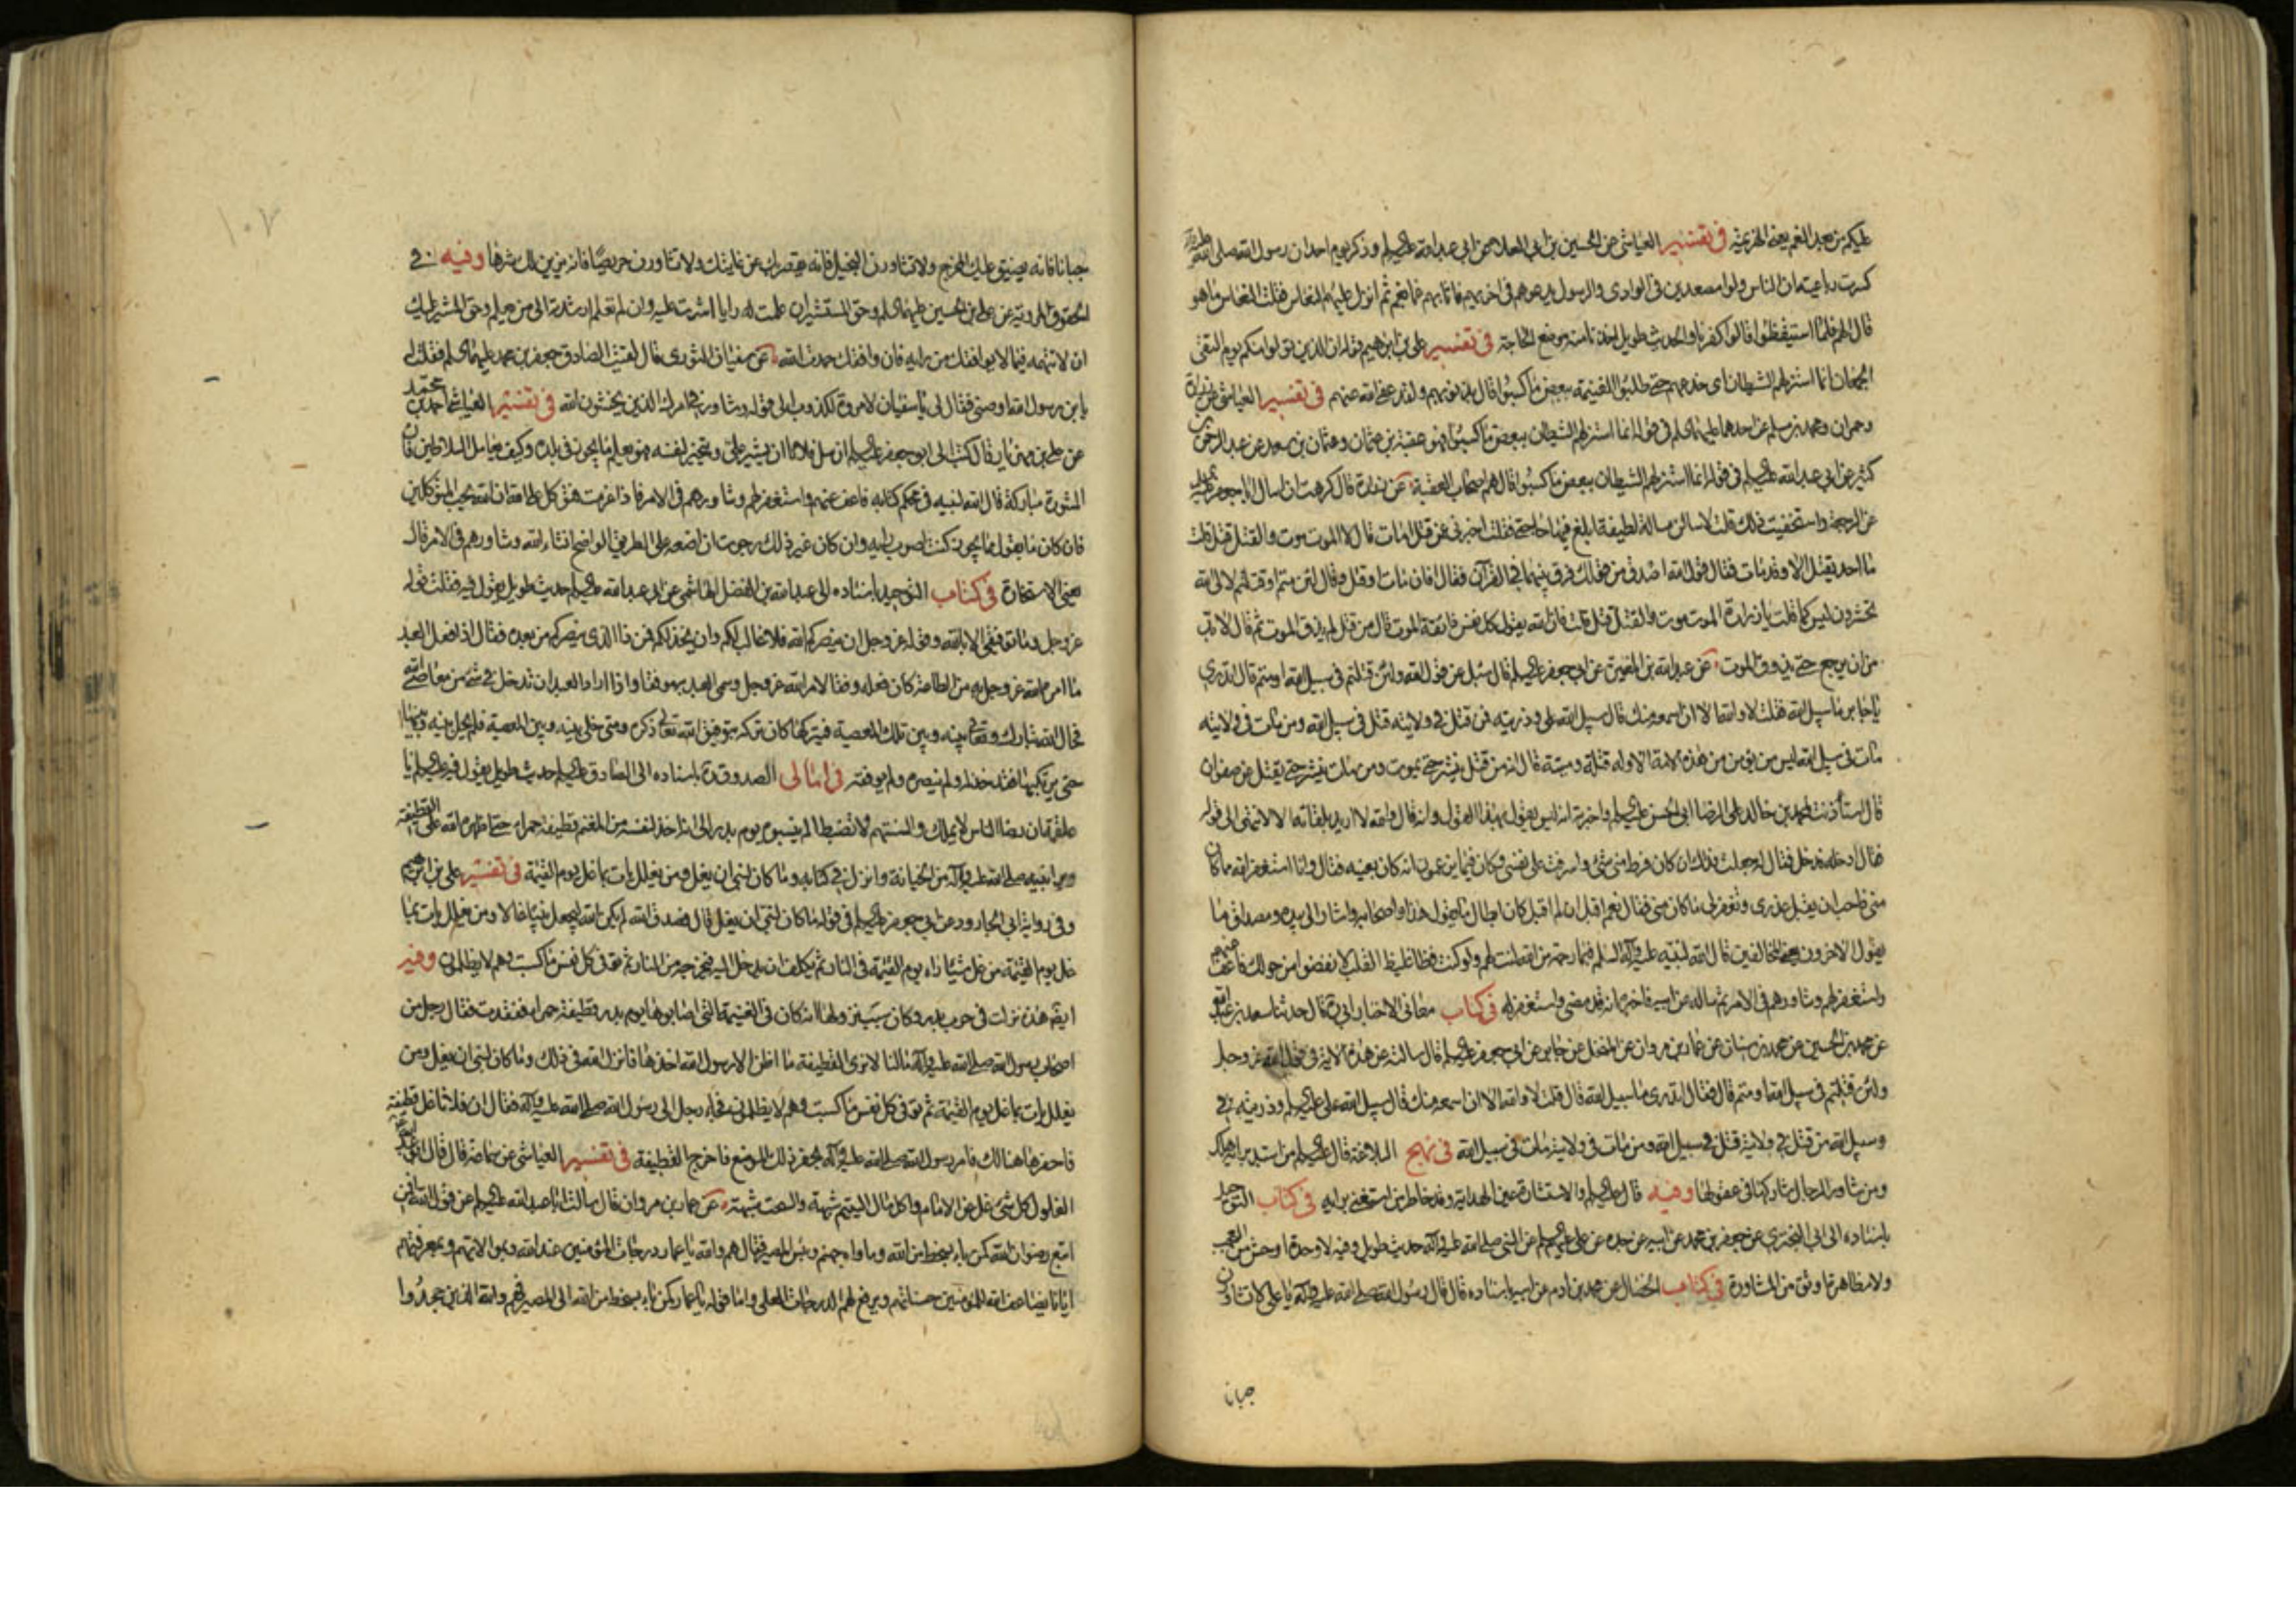 عليكم من بعد الغم يعنى الهزيمة في تفسير العياشى عن الحسين بن ابى العلا عن ابى عبد الله عليه السلم وذكر يوم احد ان رسول الله صلى الله عليه وآله
كسرت رباعيته ان الناس ولوا مصعدين فى الوادى والرسول يدعوهم فى اخريهم فاثابهم غما بغم ثم انزل عليهم النعاس فقلت النعاس ما هو
قال الهم فلما استيقظوا قالوا كفرنا والحديث طويل اخذنا منه موضع الحاجة في تفسير على بن ابرهيم قوله ان الذين تولوا منكم يوم التقى
الجمعان انما استزلهم الشيطان اى خدعهم حتى طلبوا الغنيمة ببعض ما كسبوا قال بذنوبهم ولقد عفا الله عنهم في تفسير العياشى عن زرارة
وحمران ومحمد بن مسلم عن احدهما عليهما السلم فى قوله انما استزلهم الشيطان ببعض ما كسبوا فهو عقبة بن عثمان وعثمان بن سعد عن عبد الرحمن بن
كثير عن ابى عبد الله عليه السلم فى قوله انما استزلهم الشيطان ببعض ما كسبوا قال هم اصحاب العقبة عن زرارة قال كرهت ان اسال ابا جعفر عليه السلم
عن الرجعة واستخفيت ذلك قلت لاسالن مسالة لطيفة ابلغ فيها حاجتى فقلت اخبرنى عمن قتل امات قال لا الموت موت والقتل قتل قلت
ما احد يقتل الا وقد مات فقال قول الله اصدق من قولك فرق بينهما فى القرآن فقال افان مات او قتل وقال لئن متم او قتلتم لالى الله
تحشرون ليس كما قلت يا زرارة الموت موت والقتل قتل قلت فان الله يقول كل نفس ذائقة الموت قال من قتل لم يذق الموت ثم قال لا بد
من ان يرجع حتى يذوق الموت عن عبد الله بن المغيرة عن ابى جعفر عليه السلم قال سئل عن قول الله ولئن قتلتم فى سبيل الله او متم قال اتدرى
يا جابر ما سبيل الله فقلت لا والله الا ان اسمعه منك قال سبيل الله على وذريته فمن قتل فى ولايته قتل فى سبيل الله ومن مات فى ولايته
مات فى سبيل الله ليس من يؤمن من هذه الامة الا وله قتلة وميتة قال انه من قتل ينشر حتى يموت ومن مات ينشر حتى يقتل عن صفوان
قال استأذنت لمحمد بن خالد على الرضا ابى الحسن عليه السلم واخبرته انه ليس يقول بهذا القول وانه قال والله لا اريد بلقائه الا لانتهى الى قوله
فقال ادخله فدخل فقال له جعلت فداك انه كان فرط منى شئ واسرفت على نفسى وكان فيما يزعمون انه كان يعيبه فقال وانا استغفر الله مما كان
منى فاحب ان تقبل عذرى وتغفر لى ما كان منى فقال نعم اقبل ان لم اقبل كان ابطال ما يقول هذا واصحابه واشار الى بيده ومصداق ما
يقول الاخرون يعنى المخالفين قال الله لنبيه عليه وآله السلم فبما رحمة من الله لنت لهم ولو كنت فظا غليظ القلب لانفضوا من حولك فاعف عنهم
واستغفر لهم وشاورهم فى الامر ثم ساله عن ابيه فاخبره انه قد مضى واستغفر له في كتاب معانى الاخبار ابى ره قال حدثنا سعد بن عبد الله
عن محمد بن الحسين عن محمد بن سنان عن عمار بن مروان عن المنخل عن جابر عن ابى جعفر عليه السلم قال سالته عن هذه الاية فى قول الله عز وجل
ولئن قتلتم فى سبيل الله او متم قال فقال اتدرى ما سبيل الله قال قلت لا والله الا ان اسمعه منك قال سبيل الله على عليه السلم وذريته فى
وسبيل الله من قتل فى ولايته قتل فى سبيل الله ومن مات فى ولايته مات فى سبيل الله في نهج البلاغة قال عليه السلم من استبد برايه هلك
ومن شاور الرجال شاركها فى عقولها وفيه قال عليه السلم والاستشارة عين الهداية وقد خاطر من استغنى برايه في كتاب التوحيد
باسناده الى ابى البخترى عن جعفر بن محمد عن ابيه عن جده عن على عليهم السلم عن النبى صلى الله عليه وآله حديث طويل وفيه لا وحدة اوحش من العجب
ولا مظاهرة اوثق من المشاورة في كتاب الخصال عن محمد بن ادم عن ابيه باسناده قال قال رسول الله صلى الله عليه وآله يا على لا تشاورن
جبانا
١٠٧
جبانا فانه يضيق عليك المخرج ولا تشاورن البخيل فانه يقصر بك عن غايتك ولا تشاورن حريصا فانه يزين لك شرها وفيه فى
الحقوق المروية عن على بن الحسين عليهما السلم وحق المستشير ان علمت له رايا اشرت عليه وان لم تعلم ارشدته الى من يعلم وحق المشير عليك
ان لا تتهمه فيما لا يوافقك من رايه فان وافقك حمدت الله عن سفيان الثورى قال لقيت الصادق جعفر بن محمد عليهما السلم فقلت له
يا بن رسول الله اوصنى فقال لى يا سفيان لا مروة لكذوب الى قوله وشاور فى امرك الذين يخشون الله في تفسير العياشى احمد بن محمد
عن على بن مهزيار قال كتب الى ابو جعفر عليه السلم ان سل فلانا ان يشير على ويتخير لنفسه فهو يعلم ما يجوز فى بلده وكيف يعامل السلاطين فان
المشورة مباركة قال الله لنبيه فى محكم كتابه فاعف عنهم واستغفر لهم وشاورهم فى الامر فاذا عزمت فتوكل على الله ان الله يحب المتوكلين
فان كان ما يقول مما يجوز كنت اصوب رايه وان كان غير ذلك رجوت ان اضعه على الطريق الواضح انشاء الله وشاورهم فى الامر قال
يعنى الاستخارة في كتاب التوحيد باسناده الى عبد الله بن الفضل الهاشمى عن ابى عبد الله عليه السلم حديث طويل يقول فيه فقلت قوله
عز وجل وما توفيقى الا بالله وقوله عز وجل ان ينصركم الله فلا غالب لكم وان يخذلكم فمن ذا الذى ينصركم من بعده فقال اذا فعل العبد
ما امره الله عز وجل به من الطاعة كان فعله وفقا لامر الله عز وجل وسمى العبد به موفقا واذا اراد العبد ان يدخل فى شئ من معاصى الله
فحال الله تبارك وتعالى بينه وبين تلك المعصية فيتركها كان تركه بتوفيق الله تعالى ذكره ومتى خلى بينه وبين المعصية فلم يحل بينه وبينها
حتى يرتكبها فقد خذله ولم ينصره ولم يوفقه في امالى الصدوق ره باسناده الى الصادق عليه السلم حديث طويل يقول فيه عليه السلم يا
علقمة ان رضا الناس لا يملك والسنتهم لا تضبط الم ينسبوه يوم بدر الى انه اخذ لنفسه من المغنم قطيفة حمراء حتى اظهره الله على القطيفة
وبرأ نبيه صلى الله عليه وآله من الخيانة وانزل فى كتابه وما كان لنبى ان يغل ومن يغلل يات بما غل يوم القيمة في تفسير على بن ابرهيم
وفى رواية ابى الجارود عن ابى جعفر عليه السلم فى قوله ما كان لنبى ان يغل قال فصدق الله لم يكن الله ليجعل نبيا غالا ومن يغلل يات بما
غل يوم القيمة من غل شيئا راه يوم القيمة فى النار ثم يكلف ان يدخل اليه فيخرجه من النار ثم توفى كل نفس ما كسبت وهم لا يظلمون وفيه
ايضا هذه نزلت فى حرب بدر وكان سبب نزولها انه كان فى الغنيمة التى اصابوها يوم بدر قطيفة حمراء ففقدت فقال رجل من
اصحاب رسول الله صلى الله عليه وآله ما لنا لا نرى القطيفة ما اظن الا رسول الله اخذها فانزل الله فى ذلك وما كان لنبى ان يغل ومن
يغلل يات بما غل يوم القيمة ثم توفى كل نفس ما كسبت وهم لا يظلمون فجاء رجل الى رسول الله صلى الله عليه وآله فقال ان فلانا غل قطيفة
فاحفرها هنالك فامر رسول الله صلى الله عليه وآله بحفر ذلك الموضع فاخرج القطيفة في تفسير العياشى عن سماعة قال قال ابو عبد الله
الغلول كل شئ غل عن الامام واكل مال اليتيم شبهة والسحت شبهة عن عمار بن مروان قال سالت ابا عبد الله عليه السلم عن قول الله افمن
اتبع رضوان الله كمن باء بسخط من الله وماواه جهنم وبئس المصير فقال هم والله يا عمار درجات للمؤمنين عند الله وبموالاتهم وبمعرفتهم
ايانا يضاعف الله للمؤمنين حسناتهم ويرفع لهم الدرجات العلى واما قوله يا عمار كمن باء بسخط من الله الى المصير فهم والله الذين جحدوا